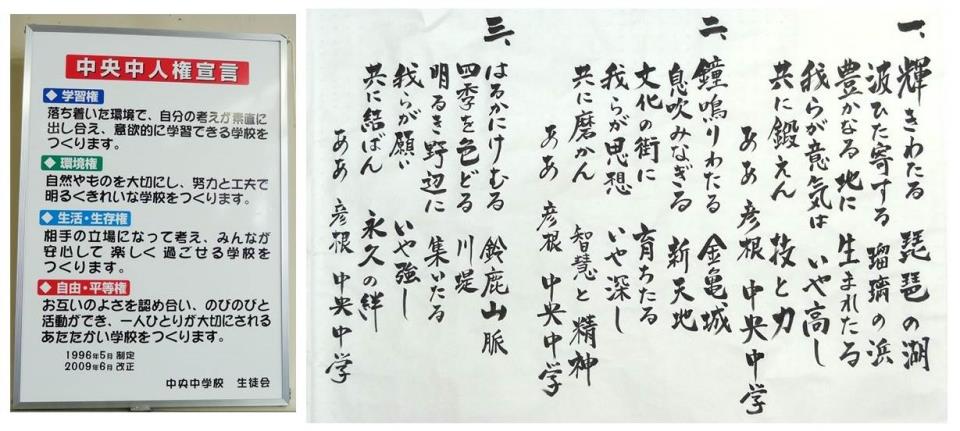 中央中人権宣言
◆学習権
落ち着いた環境で、自分の考えが素直に
出し合え、意欲的に学習できる学校を
つくります。
◆環境権
自然やものを大切にし、努力と工夫で
明るくきれいな学校をつくります。
◆生活・生存権
相手の立場になって考え、みんなが
安心して 楽しく 過ごせる学校を
つくります。
◆自由・平等権
お互いのよさを認め合い、のびのびと
活動ができ、一人ひとりが大切にされる
あたたかい学校をつくります。
1996年5月 制定
2009年6月 改正
中央中学校 生徒会
一、輝きわたる 琵琶の湖
波ひた寄する 瑠璃の浜
豊かなる地に 生まれたる
我らが意気は いや高し
共に鍛えん 技と力
ああ 彦根 中央中学
二、鐘鳴りわたる 金亀城
息吹みなぎる 新天地
文化の街に 育ちたる
我らが思想 いや深し
共に磨かん 智慧と精神
ああ 彦根 中央中学
三、はるかにけむる 鈴鹿山脈
四季を色どる 川堤
明るき野辺に 集いたる
我らが願い いや強し
共に結ばん 永久の絆
ああ 彦根 中央中学